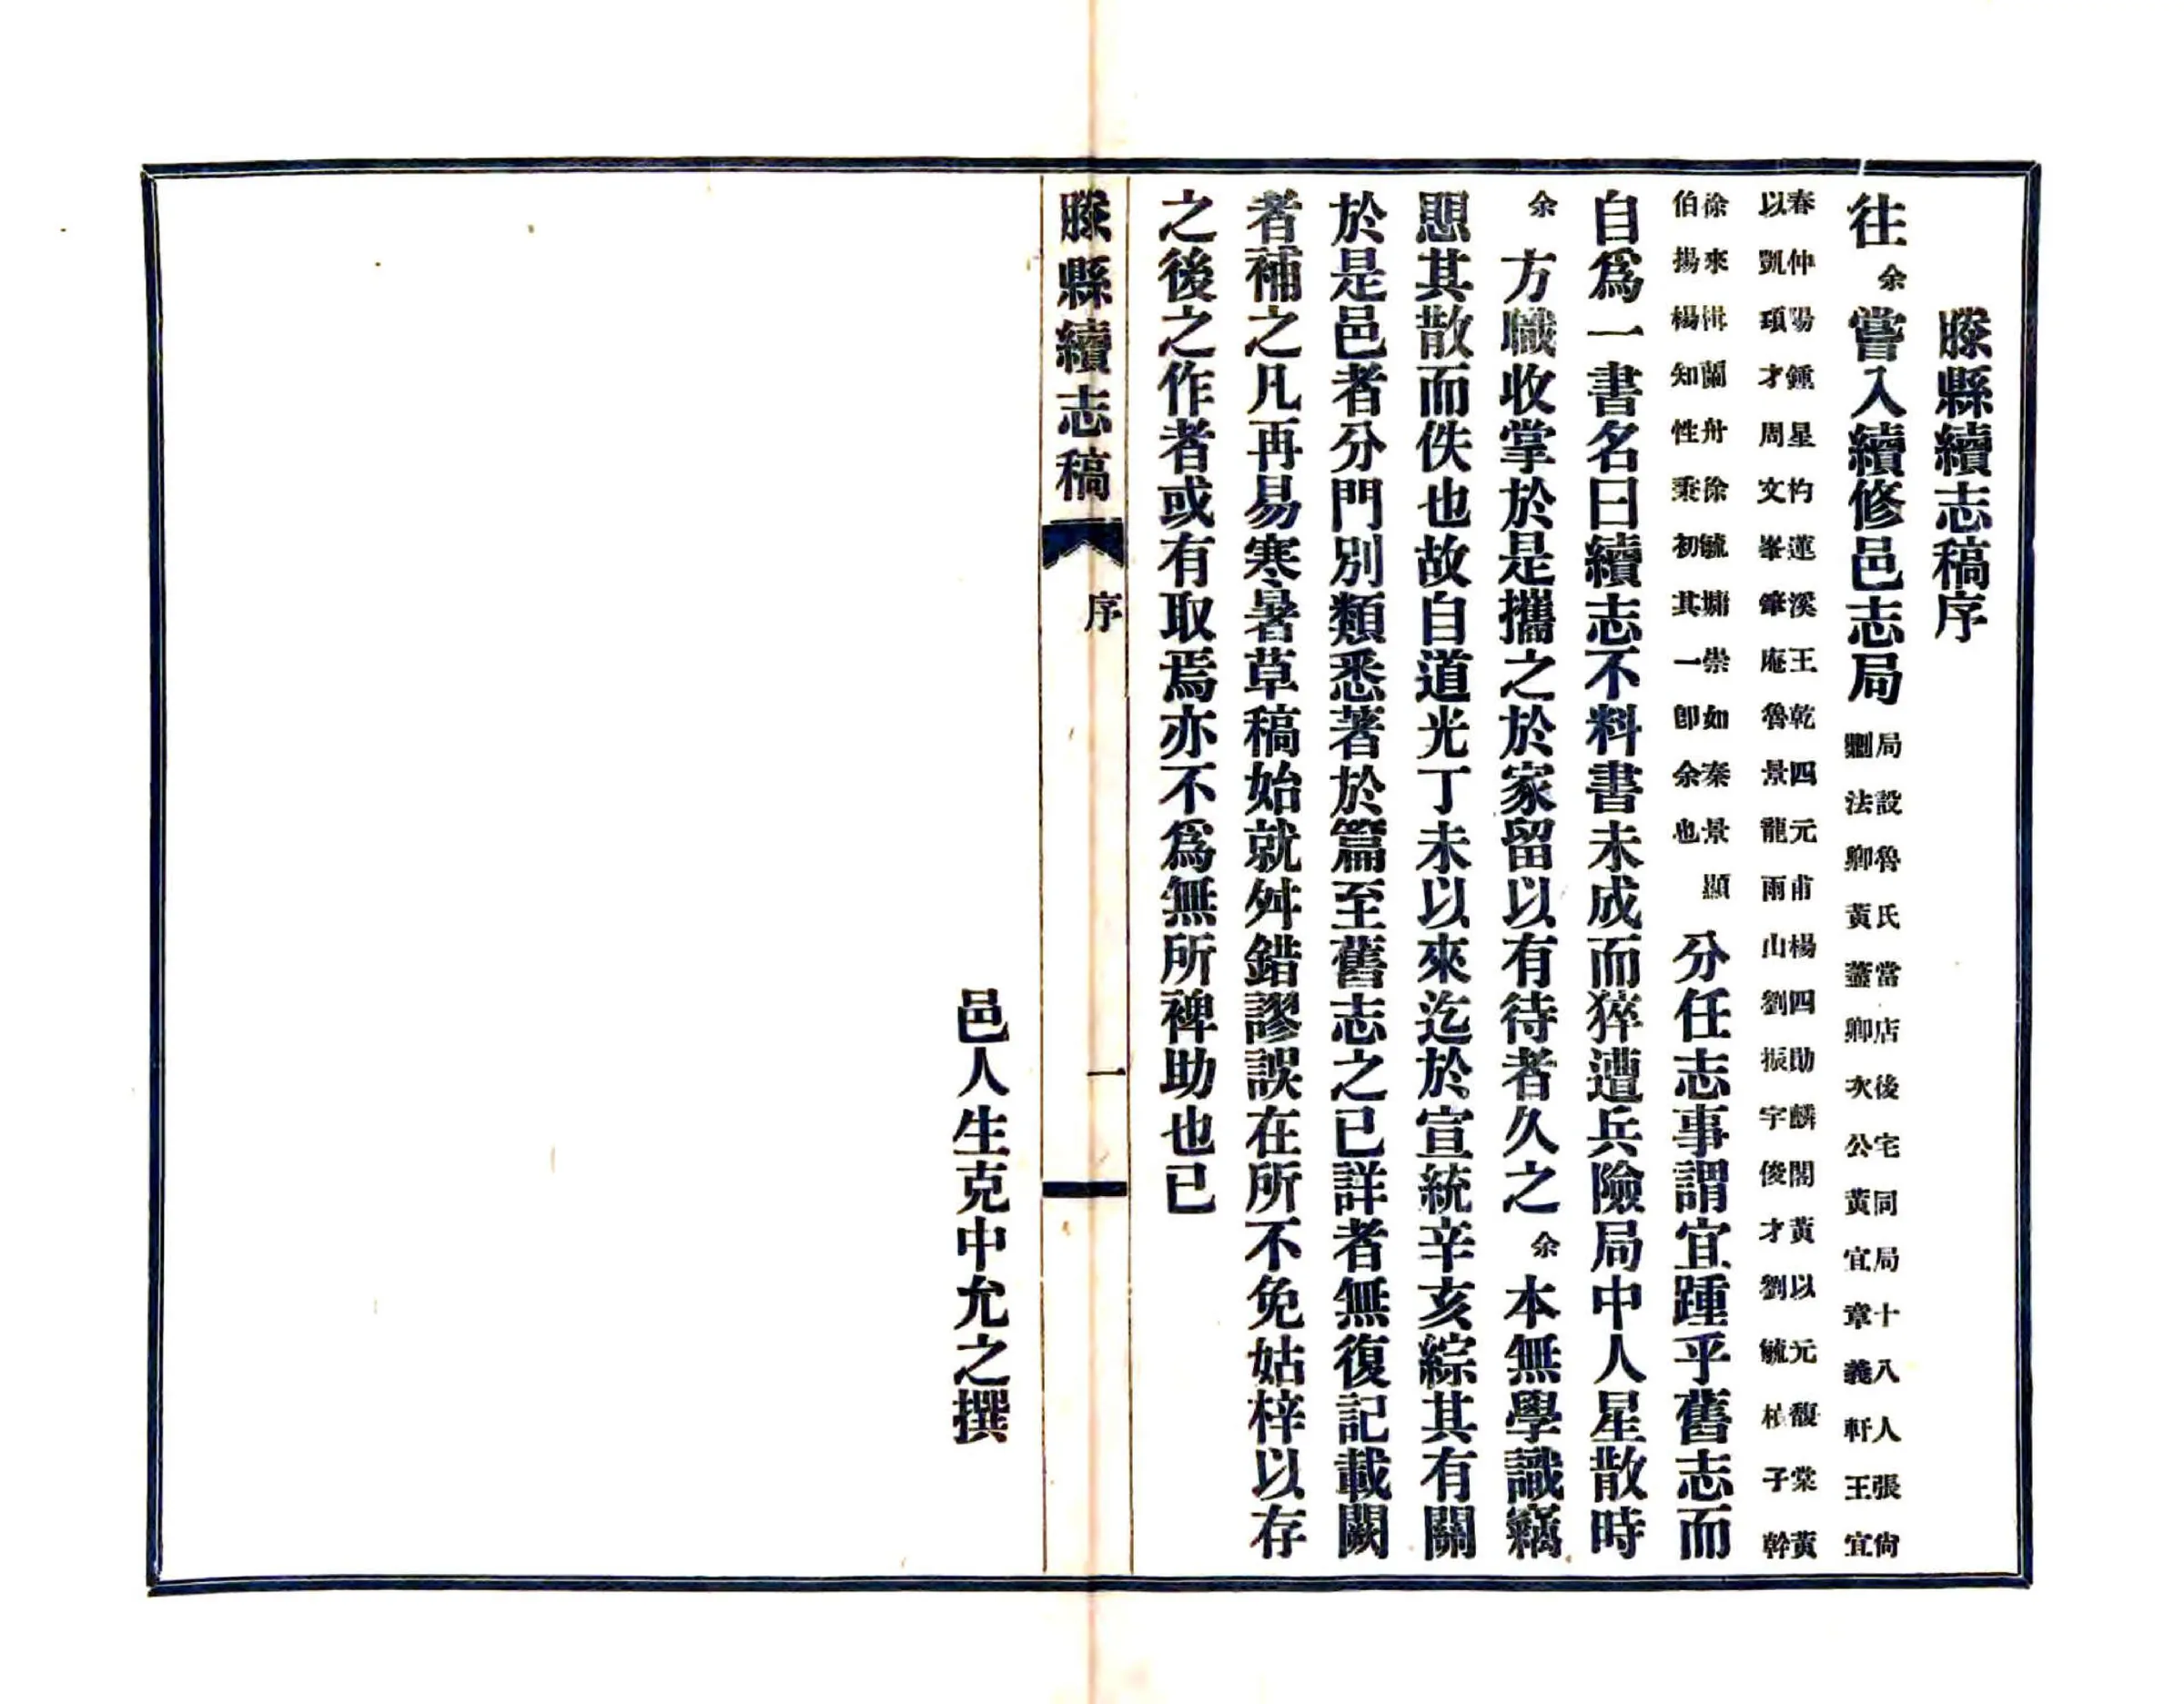 滕縣續志稿序
往余嘗入續修邑志局
局設魯氏當店後宅同局十八人張尙
法卿黃藎卿次公黃宜章義軒王宜
春仲陽鍾星杓蓮溪王乾四元甫楊四勛麟閣黃以元馥棠黃
以凱頊才周文峯肇庵魯景龍雨山劉振宇俊才劉毓子幹
徐來楫蘭舟徐毓墉崇如秦景顯
伯揚楊知性秉初其一卽余也
分任志事謂宜踵乎舊志而
自爲一書名曰續志不料書未成而猝遭兵險局中人星散時
余方職收掌於是攜之於家留以有待者久之余本無學識竊
愳其散而佚也故自道光丁未以來迄於宣統辛亥綜其有關
於是邑者分門別類悉著於篇至舊志之已詳者無復記載闕
者補之凡再易寒暑草稿始就舛錯謬誤在所不免姑梓以存
之後之作者或有取焉亦不爲無所裨助也已
滕縣續志稿
序
一
邑人生克中允之撰